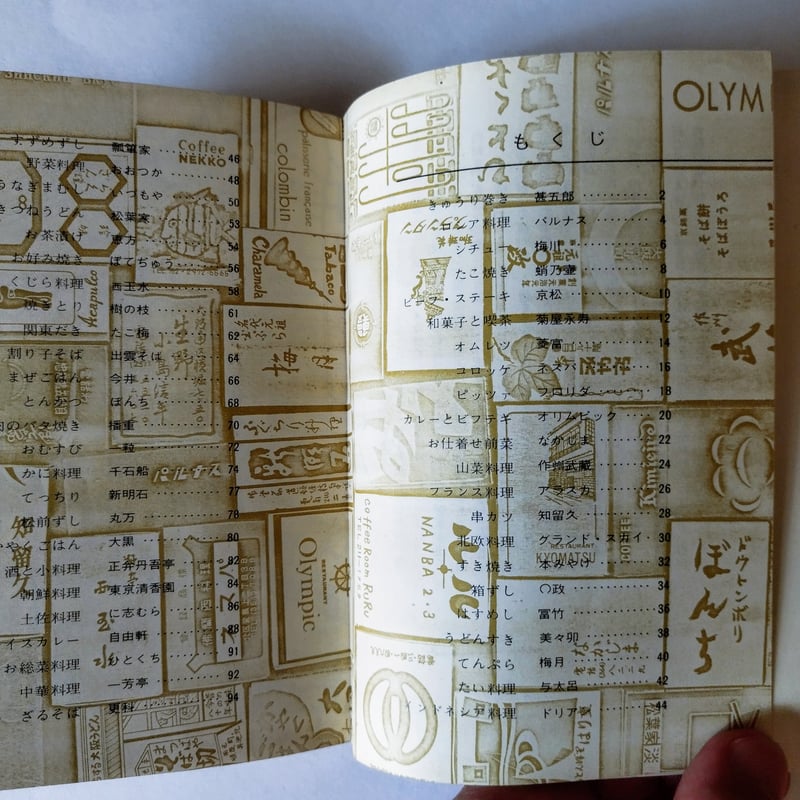 もくじ
きゅうり巻き 甚五郎 2
ロシア料理 バルナス 4
シチュー 梅川 6
たこ焼き 蛸乃壷 8
ビーフ・ステーキ 京松 10
和菓子と喫茶 菊屋永寿 12
オムレツ 菱富 14
コロッケ ネスパ 16
ピッツァ フロリダ 18
カレーとビフテキ オリムピック 20
お仕着せ前菜 なかじま 22
山菜料理 作州武蔵 24
フランス料理 アラスカ 26
串カツ 知留久 28
北欧料理 グランド・スカイ 30
すき焼き 本みやけ 32
箱ずし 〇政 34
はすめし 冨竹 36
うどんすき 美々卯 38
てんぷら 梅月 40
たい料理 与太呂 42
インドネシア料理 ドリアン 44
すずめずし 瓢箪家 46
野菜料理 おおつか 48
うなぎまむし いづもや 50
きつねうどん 松葉家 53
お茶漬け 恵方 54
お好み焼き ぼてぢゅう 56
くじら料理 西玉水 58
焼きとり 樹の枝 61
関東だき たこ梅 62
割り子そば 出雲そば 64
まぜごはん 今井 66
とんかつ ぼんち 68
肉のバタ焼き 播重 70
おむすび 一粒 72
かに料理 千石船 74
てっちり 新明石 77
松前ずし 丸万 78
ごはん 大黒 80
酒と小料理 正弁丹吾亭 82
朝鮮料理 東京清香園 84
土佐料理 に志むら 86
イスカレー 自由軒 88
お総菜料理 ひとくち 91
中華料理 一芳亭 92
ざるそば 更科 94
OLYM
Coffee
NEKKO
patisserie française
colombin
Tabaco
Charamela
Acapulco
RESTAURANT
Olympic
coffee Room RuRu
NANBA 2・3
RESTAURANT
KYOMATSU
ドウトンボリ
ぼんち
そば餅
そばぼうろ